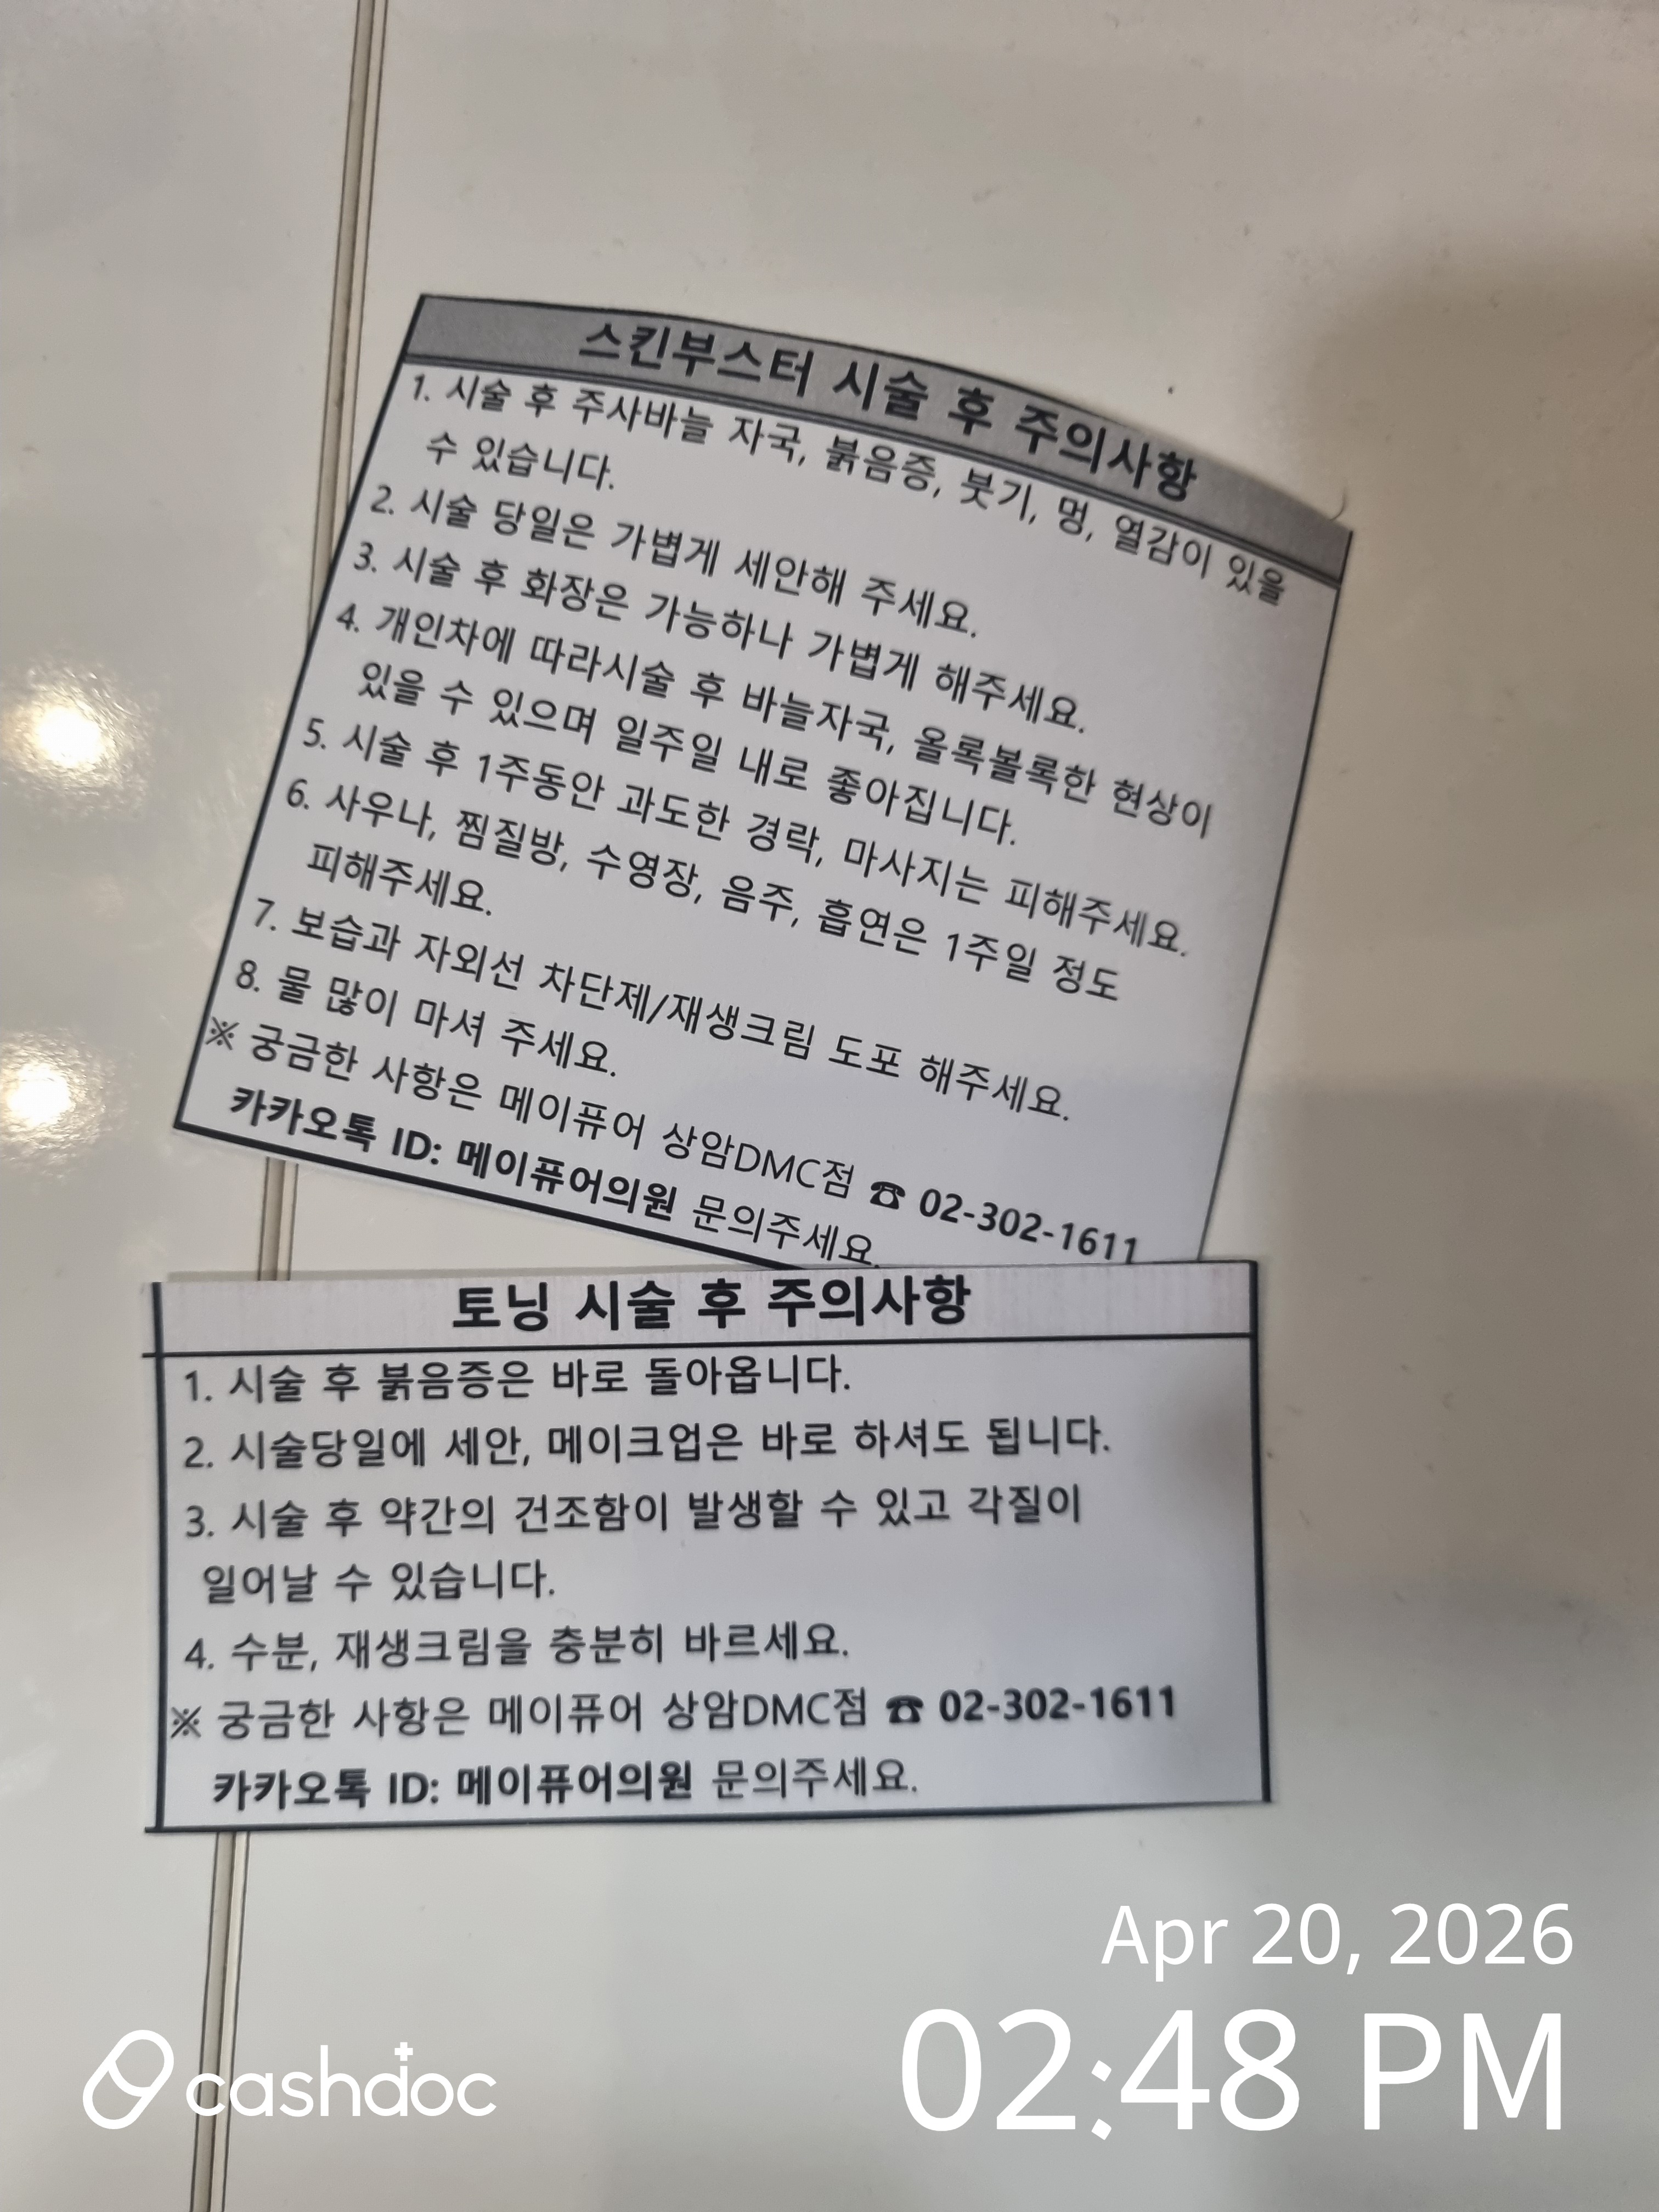 스킨부스터 시술 후 주의사항
1. 시술 후 주사바늘 자국, 붉음증, 붓기, 멍, 열감이 있을
수 있습니다.
2. 시술 당일은 가볍게 세안해 주세요.
3. 시술 후 화장은 가능하나 가볍게 해주세요.
4. 개인차에 따라시술 후 바늘자국, 올록볼록한 현상이
있을 수 있으며 일주일 내로 좋아집니다.
5. 시술 후 1주동안 과도한 경락, 마사지는 피해주세요.
6. 사우나, 찜질방, 수영장, 음주, 흡연은 1주일 정도
피해주세요.
7. 보습과 자외선 차단제/재생크림 도포 해주세요.
8. 물 많이 마셔 주세요.
※ 궁금한 사항은 메이퓨어 상암DMC점 ☎ 02-302-1611
카카오톡 ID: 메이퓨어의원 문의주세요.
토닝 시술 후 주의사항
1. 시술 후 붉음증은 바로 돌아옵니다.
2. 시술당일에 세안, 메이크업은 바로 하셔도 됩니다.
3. 시술 후 약간의 건조함이 발생할 수 있고 각질이
일어날 수 있습니다.
4. 수분, 재생크림을 충분히 바르세요.
※ 궁금한 사항은 메이퓨어 상암DMC점 ☎ 02-302-1611
카카오톡 ID: 메이퓨어의원 문의주세요.
Apr 20, 2026
02:48 PM
cashdoc